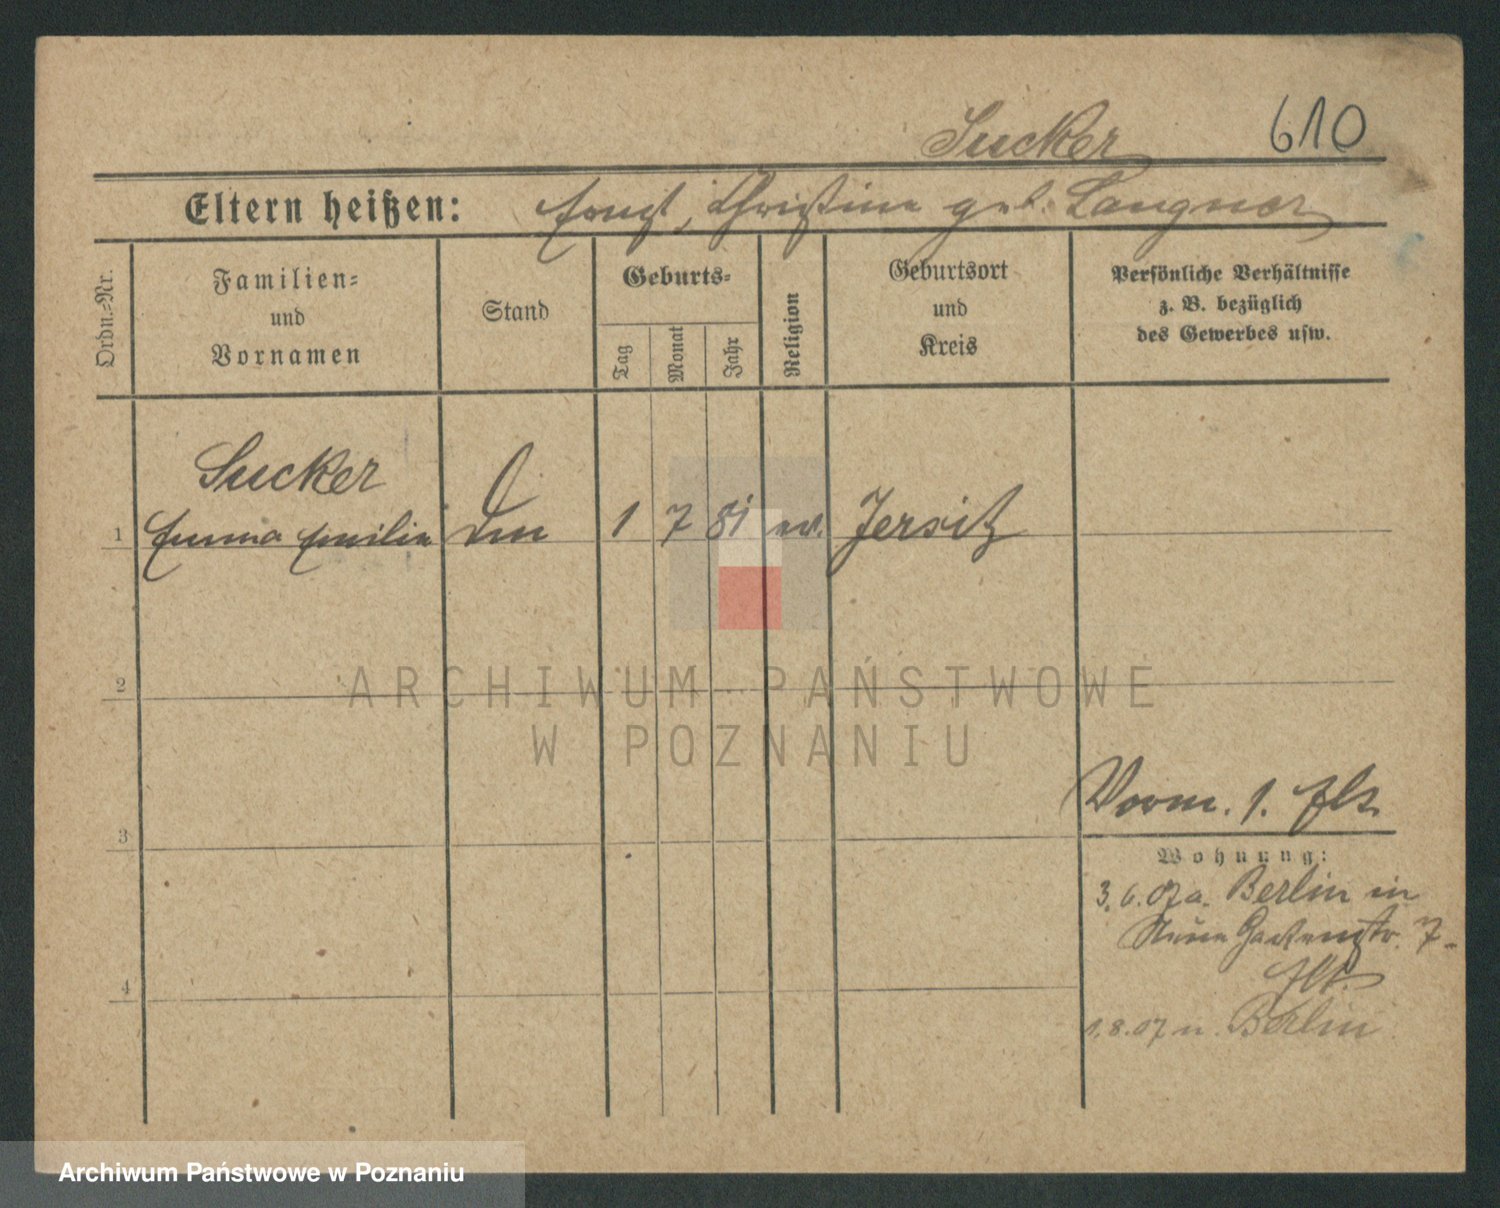 Sucker 610
Eltern heißen: Ernst, Christine geb. Langner
Ordn.-Nr.
Familien-
und
Vornamen
Stand
Geburts-
Tag
Monat
Jahr
Religion
Geburtsort
und
Kreis
Persönliche Verhältnisse
z. B. bezüglich
des Gewerbes usw.
Sucker
1 Emma Emilie 1 7 81 ev. Jersitz
2
ARCHIWUM PAŃSTWOWE
W POZNANIU
Vorm. 1.
3
Wohnung:
3.6.07 a. Berlin in
Neue Gartenstr. 7
4
1.8.07 n. Berlin
Archiwum Państwowe w Poznaniu